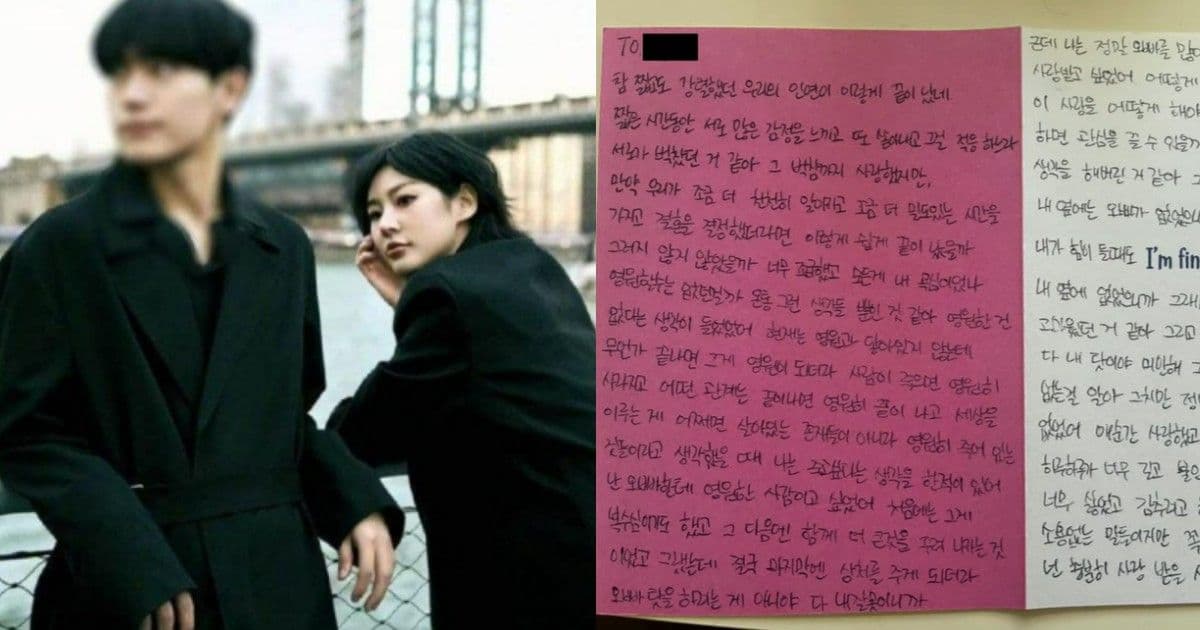 TO
참 짧고도 강렬했던 우리의 인연이 이렇게 끝이 났네
짧은 시간동안 서로 많은 감정을 느끼고 또 쏟아내고 그걸 적응 하느라
서로가 벅찼던 거 같아 그 벅참까지 사랑했지만,
만약 우리가 조금 더 천천히 알아가고 조금 더 밀도있는 시간을
가지고 결혼을 결정했더라면 이렇게 쉽게 끝이 났을까
그러지 않지 않았을까 너무 조급했고 모든게 내 욕심이었나
영원하자는 왔던걸까 온통 그런 생각들 뿐인 것 같아 영원한 건
없다는 생각이 들었었어 현재는 영원과 닿아있지 않는데
무언가 끝나면 그게 영원이 되더라 사람이 죽으면 영원히
사라지고 어떤 관계는 끝이나면 영원히 끝이 나고 세상을
이루는 게 어쩌면 살아있는 존재들이 아니라 영원히 죽어 있는
것들이라고 생각했을 때 나는 죽고싶다는 생각을 한적이 있어
난 오빠한테 영원한 사람이고 싶었어 처음에는 그게
복수심이기도 했고 그 다음엔 함께 더 큰것을 주려 나가는 것
이었고 그랬는데 결국 마지막엔 상처를 주게 되더라
오빠 탓을 하려는 게 아니야 다 내잘못이니까
근데 나는 정말 오빠를 많이
사랑받고 싶었어 어떻게
이 사랑을 어떻게 해야
하면 관심을 끌 수 있을까
생각을 해버린 거 같아 그
내 옆에는 오빠가 없었
내가 힘이 들때도 I'm fin
내 옆에 없었으니까 그래
고 거 같아 그리고
다 내 탓이야 미안해 그
없는걸 알아 그치만 전
없었어 매순간 사랑했고
하루하루가 너무 길고 불안
너무 싫었고 감추려고
소용없는 말들이지만 꼭
넌 충분히 사랑 받을 사